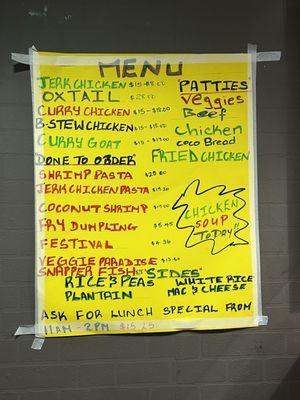 MENU
JERK CHICKEN $15-$18.00
OXTAIL $28.00
CURRY CHICKEN $15-$18.00
B-STEW CHICKEN $15-$18.00
CURRY GOAT $15-$19.00
DONE TO ORDER
SHRIMP PASTA $20.00
JERK CHICKEN PASTA
COCONUT SHRIMP
FRY DUMPLING $5.45
FESTIVAL
VEGGIE PARADISE
SNAPPER FISH
PATTIES
Veggies
Beef
Chicken
COCO Bread
FRIED CHICKEN
CHICKEN
SOUP
TODAY!!
"SIDES"
RICE & PEAS WHITE RICE
PLANTAIN MAC & CHEESE
ASK FOR LUNCH SPECIAL FROM
11AM - 2PM $15.25